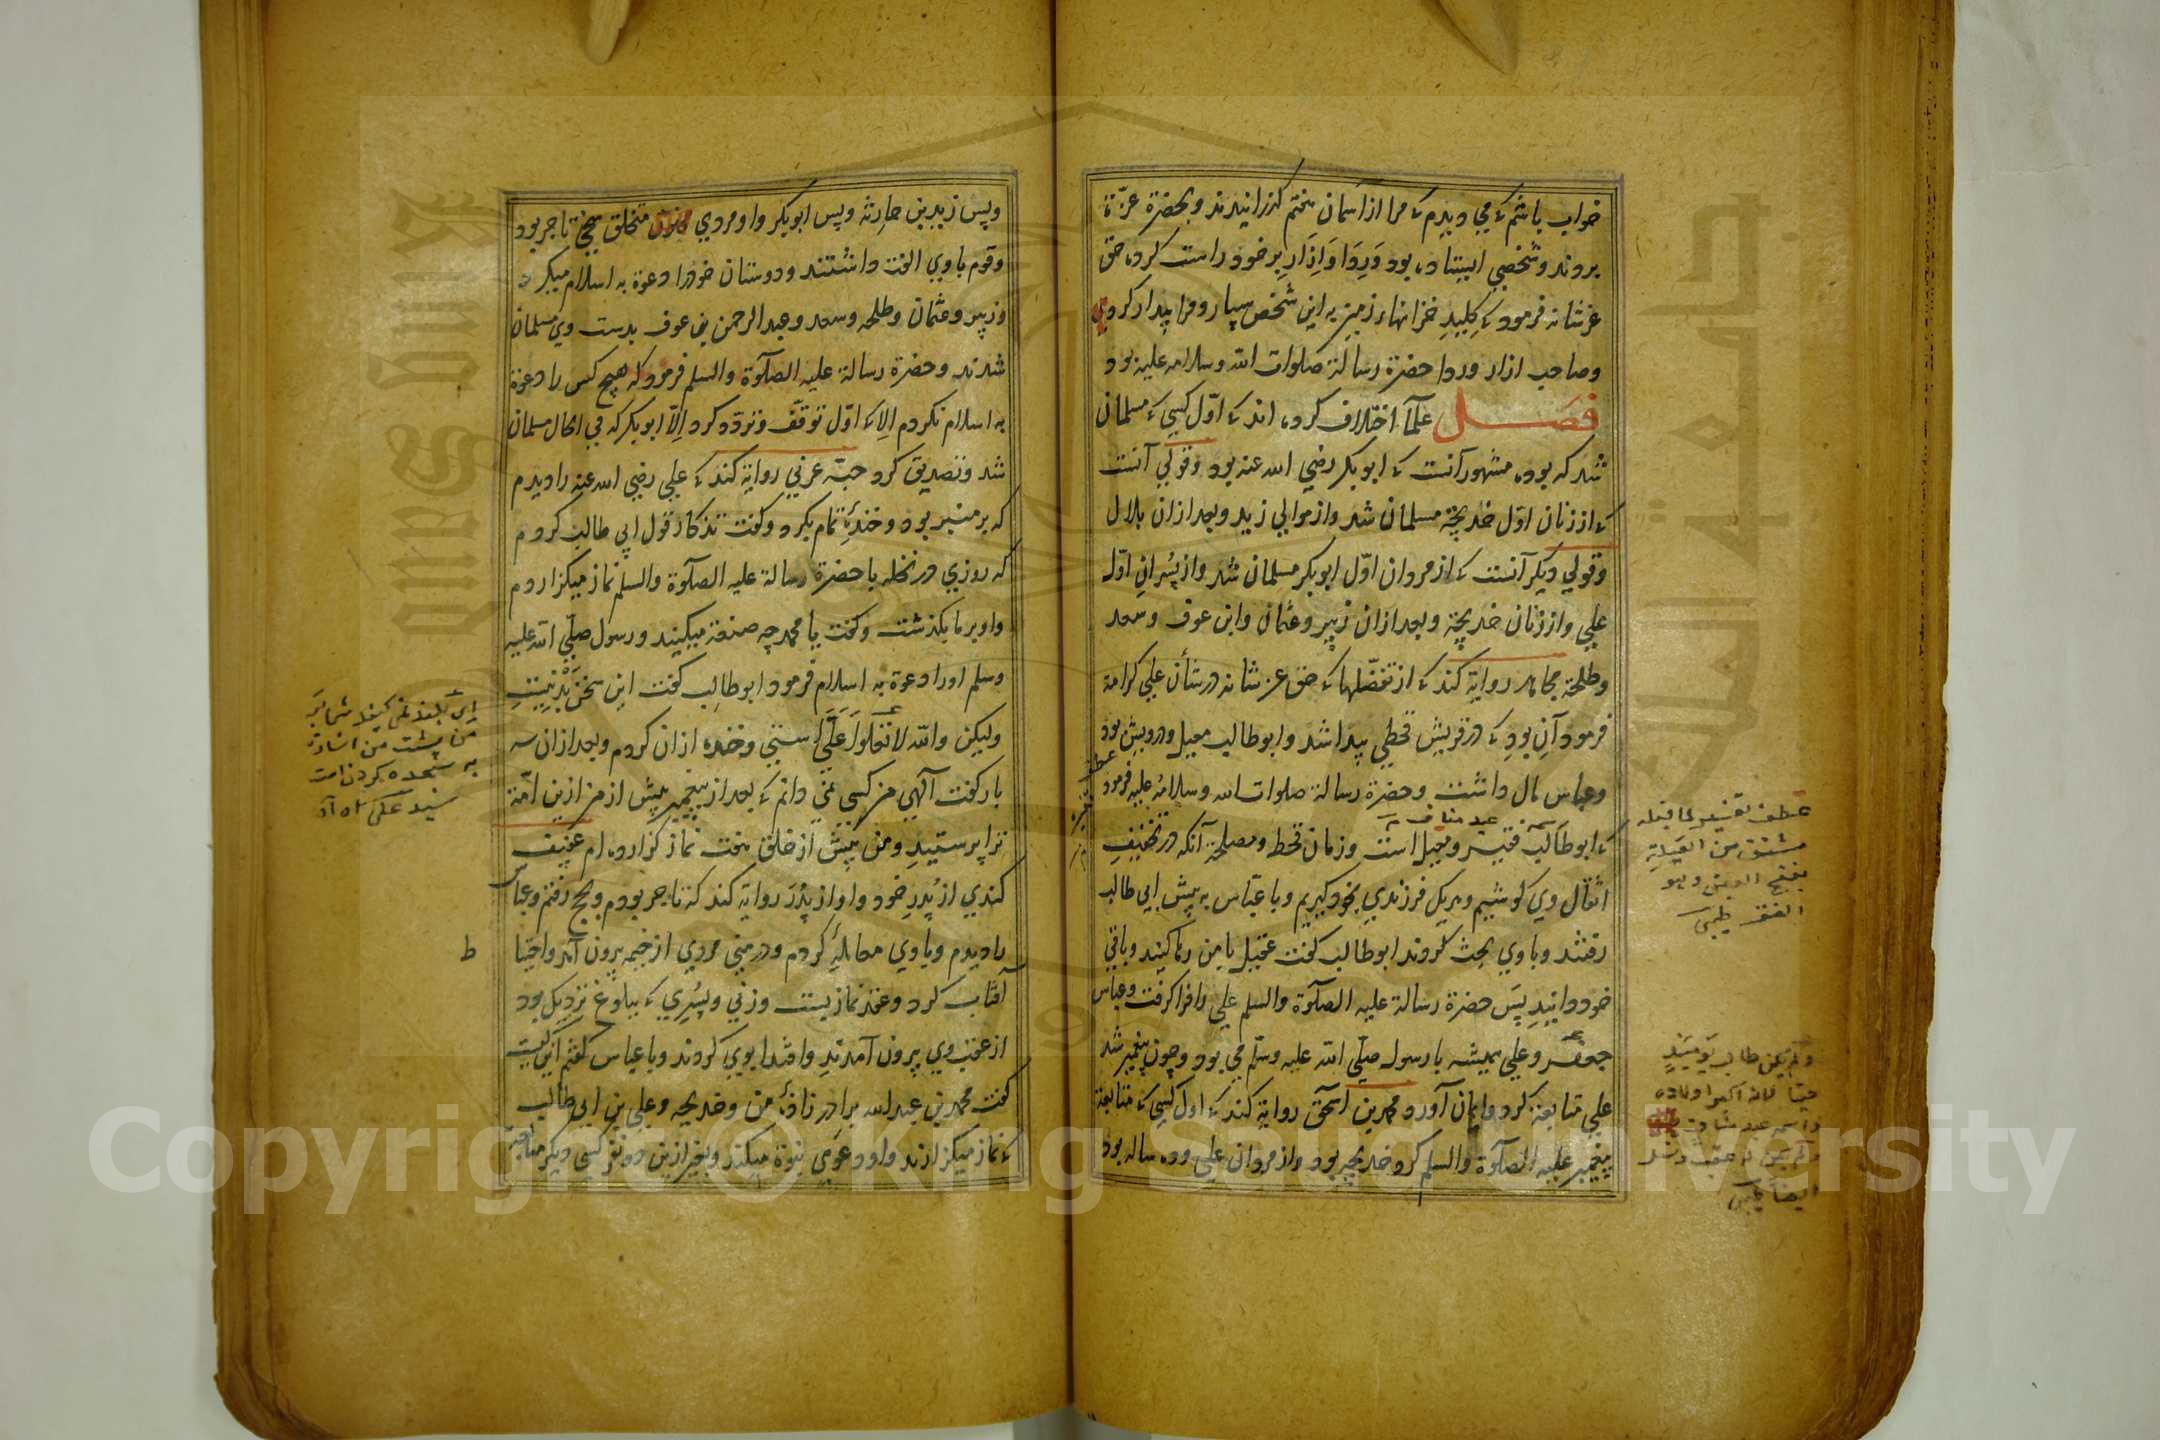 خواب باشم که می دیدم که مرا از آسمان هفتم گذرانیدند و بحضرة عزّة
بردند و شخصی ایستاده بود وَرِدَا وَاِزَارِ بر خود راست کرده حق
عز شانه فرمود که کلیدِ خزانهاء زمین به این شخص سپار و مرا بیدار کردی
و صاحب ازار و ردا حضرة رسالة صلوات الله و سلامه علیه بود
فصل علما اختلاف کرده اند که اوّل کسی که مسلمان
شد که بوده مشهور آنست که ابوبکر رضی الله عنه بود و قولی آنست
که از زنان اوّل خدیجة مسلمان شد و از موالی زید و بعد ازان بلال
و قولی دیکر آنست که از مردان اوّل ابوبکر مسلمان شد و از پُسرانِ اوّل
علی و از زنان خدیجة و بعد ازان زبیر و عثمان و ابن عوف و سعد
و طلحة مجاهد روایة کند که از تفضّلها که حق عز شانه در شأن علی کرامة
فرمود آن بودِ که در قریش قحطی پیدا شد و ابوطالب معیل و درویش بود
و عباس مال داشت و حضرة رسالة صلوات الله و سلامُه علیه فرمود
عبد مناف
که ابوطالب فقیر و معیل است و زمان قحط و مصلحة آنکه در تخفیفِ
اثقال وی کوشیم و هر یک فرزندی بخود کیریم و با عبّاس به پیش ابی طالب
رفتند و با وی بحث کردند ابوطالب کفت عقیل با من رها کنید و باقی
خود دانید پس حضرة رسالة علیه الصلوة والسلم علی را فرا کرفت و عباس
جعفر و علی همیشه با رسول صلّی الله علیه وسلّم می بود و چون پیغمبر شد
علی متابعة کرد و ایمان آورد محمد بن اسحق روایة کند که اوّل کسی که متابعة
پیغمبر علیه الصلوة والسلم کرد خدیجه بود و از مردان علی و ده ساله بود
عطف تفسیر لما قبله
مشتق من العیلة
بفتح العین و هو
الفقر طیبی
و پس زید بن حارثه و پس ابوبکر و او مردی متخلق سخی تاجر بود
و قوم با وی الفت داشتند و دوستان خود را دعوة به اسلام میکرد
و زبیر و عثمان و طلحه و سعد و عبد الرحمن بن عوف بدست وی مسلمان
شدند و حضرة رسالة علیه الصلوة والسلم فرمود که هیچ کس را دعوة
به اسلام نکردم الا که اوّل توقّف و تردّد کرد اِلّا ابوبکر که فی الحال مسلمان
شد و تصدیق کرد حبّه عرنی روایة کند که علی رضی الله عنه را دیدم
که بر منبر بود و خندهٔ تمام بکرد و کفت تذکار قول ابی طالب کردم
که روزی در نخله با حضرة رسالة علیه الصلوة والسلم نماز میکزاردم
و او بر ما بکذشت و کفت یا محمد چه صنعة میکنید و رسول صلّی الله علیه
وسلم او را دعوة به اسلام فرمود ابوطالِب کفت این سخن بَدْ نیست
ولیکن والله لا تعلوا علیّ استی و خنده ازان کردم و بعد ازان سه
بار کفت الهی من کسی نمی دانم که بعد از پیغمبر پیش از من ازین امّة
ترا پرستید و من پیش از خلق هفت نماز کزارده ام عفیف
کندی از پُدرِ خود و او از پدرَ روایة کند که تاجر بودم و بحج رفتم و عباس
را دیدم و با وی معاملهٔ کردم و در منی مردی از خیمه بیرون آمد و احتیا
ط
آفتاب کرد و عند نماز بیست و زنی و پسری که ببلوغ نزدیک بود
از عقب وی بیرون آمدند و اقتدا بوی کردند و با عباس کفتم این کیست
کفت محمد بن عبد الله برادر زادهٔ من و خدیجه و علی بن ابی طالب
که نماز میکزارند و او دعوی نبوة میکند و بغیر ازین دو نفر کسی دیکر متابعة
من پشت من اشارة
به سجده کردن است
سید علی
Copyright © King Saud University